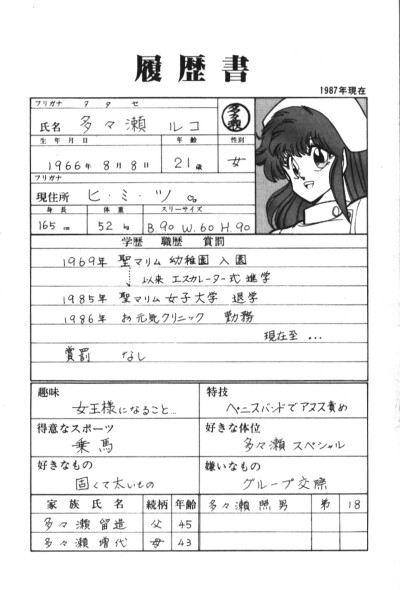 履歴書
1987年現在
フリガナ タタセ
氏名 多々瀬 ルコ
多々瀬
生年月日 年齢 性別
1966年 8月 8日 21歳 女
フリガナ
現住所 ヒ・ミ・ツ
身長 体重 スリーサイズ
165cm 52kg B.90 W.60 H.90
学歴 職歴 賞罰
1969年 聖マリム 幼稚園 入園
以来 エスカレーター式 進学
1985年 聖マリム 女子大学 退学
1986年 お元気クリニック 勤務
現在至...
賞罰 なし
趣味 特技
女王様になること... ペニスバンドでアヌス責め
得意なスポーツ 好きな体位
乗馬 多々瀬 スペシャル
好きなもの 嫌いなもの
固くて太いもの グループ交際
家族氏名 続柄 年齢 多々瀬 照男 弟 18
多々瀬 留造 父 45
多々瀬 増代 母 43